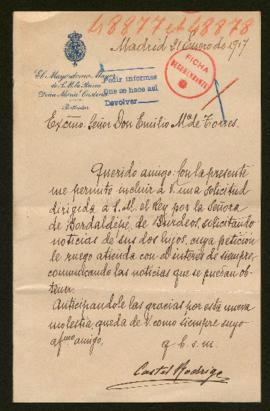 48877 et 48878
Madrid 21 enero de 1917
El Mayordomo Mayor
de S.M. la Reina
Doña María Cristina
Particular
Pedir informes
que se hace así
Devolver
FICHA
Excmo. Señor Don Emilio Mª de Torres.
Querido amigo: Con la presente
me permito incluir á V. una solicitud
dirigida á S.M. el Rey por la Señora
de Bordaldése, de Burdeos, solicitando
noticias de sus dos hijos, cuya petición
le ruego atienda con el interés de siempre,
comunicando las noticias que se puedan ob-
tener.
Anticipandole las gracias por esta nueva
molestia, queda de V. como siempre suyo
afmo amigo.
q b. s. m.
Castel Rodrigo